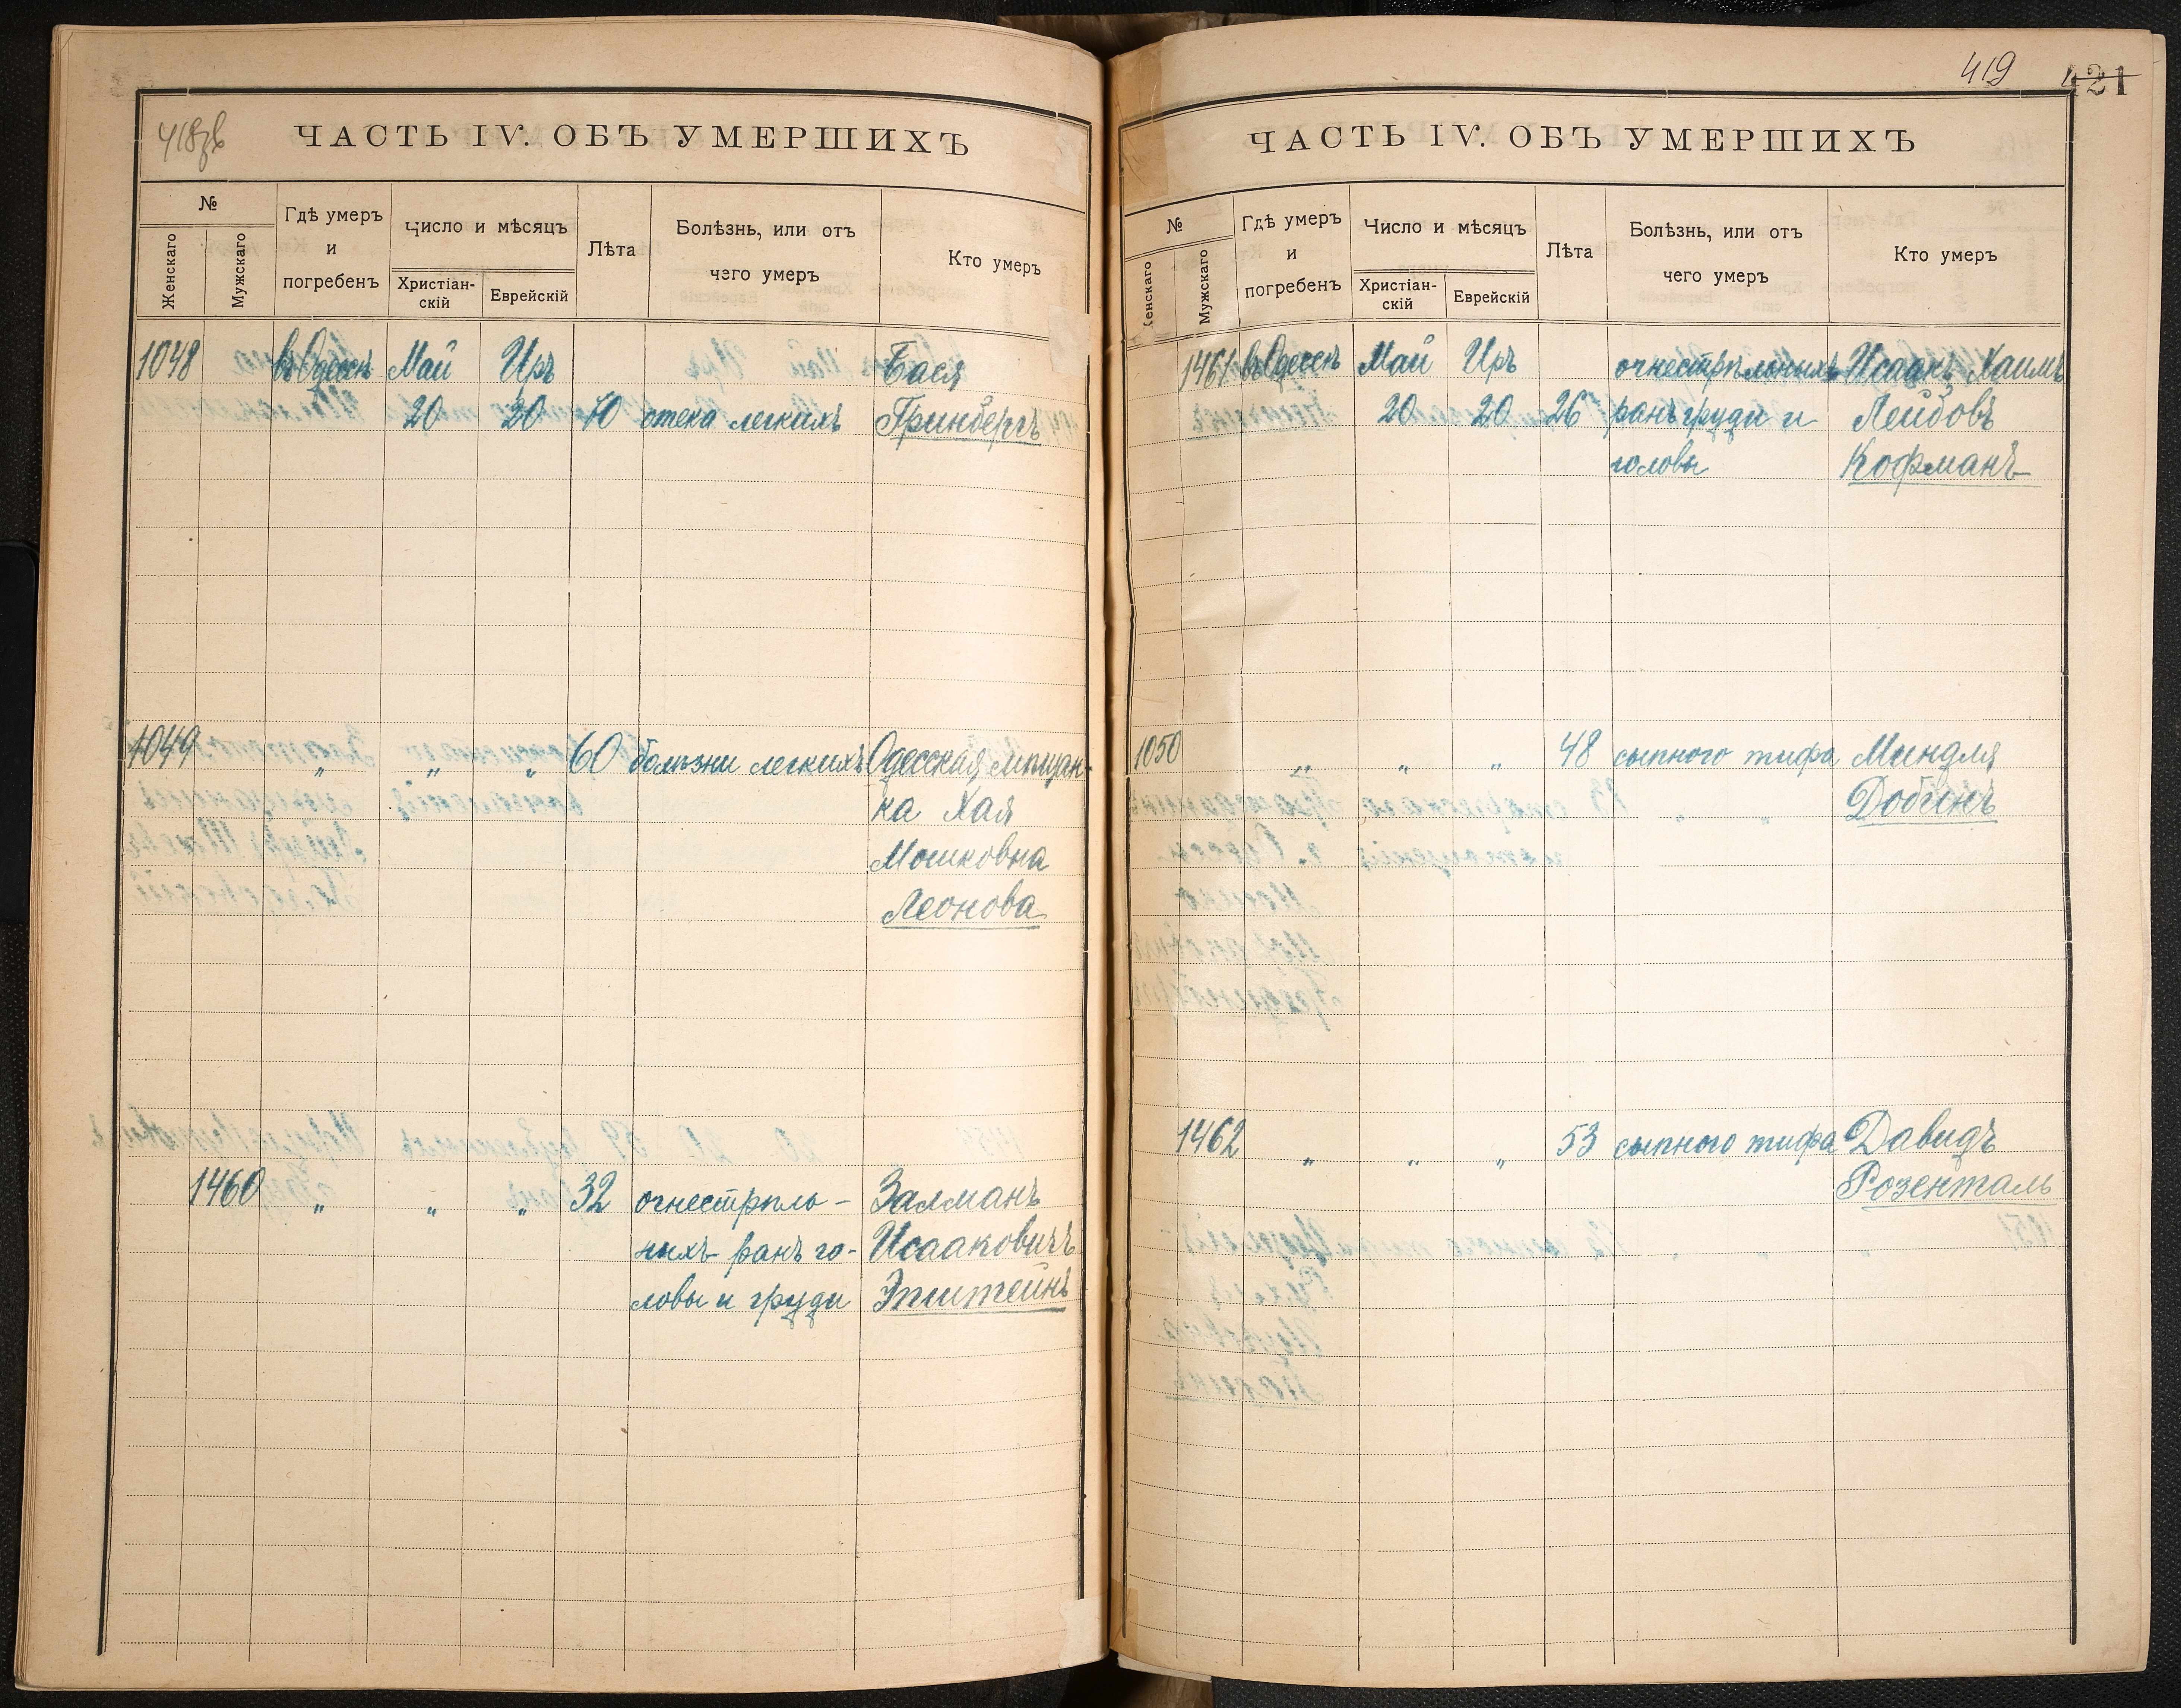 418об
ЧАСТЬ IV. ОБЪ УМЕРШИХЪ
№
Женскаго
Мужскаго
Гдѣ умеръ
и
погребенъ
Число и мѣсяцъ
Христіан-
скій
Еврейскій
Лѣта
Болѣзнь, или отъ
чего умеръ
Кто умеръ
1048 въ Одессѣ Май Иръ Бася
20 20 70 отека легкихъ Гринбергъ
1049 " " " 60 болѣзни легкихъ Одесская мѣщан-
ка Хая
Мошковна
Леонова
1460 " " " 32 огнестрѣль- Залманъ
ныхъ ранъ го- Исааковичъ
ловы и груди Эпштейнъ
419 421
ЧАСТЬ IV. ОБЪ УМЕРШИХЪ
№
Женскаго
Мужскаго
Гдѣ умеръ
и
погребенъ
Число и мѣсяцъ
Христіан-
скій
Еврейскій
Лѣта
Болѣзнь, или отъ
чего умеръ
Кто умеръ
1461 въ Одессѣ Май Иръ огнестрѣльныхъ Исаакъ Хаимъ
20 20 26 ранъ груди и Лейбовъ
головы Кофманъ
1050 " " " 48 сыпного тифа Миндля
Добинъ
1462 " " " 53 сыпного тифа Давидъ
Розенталь